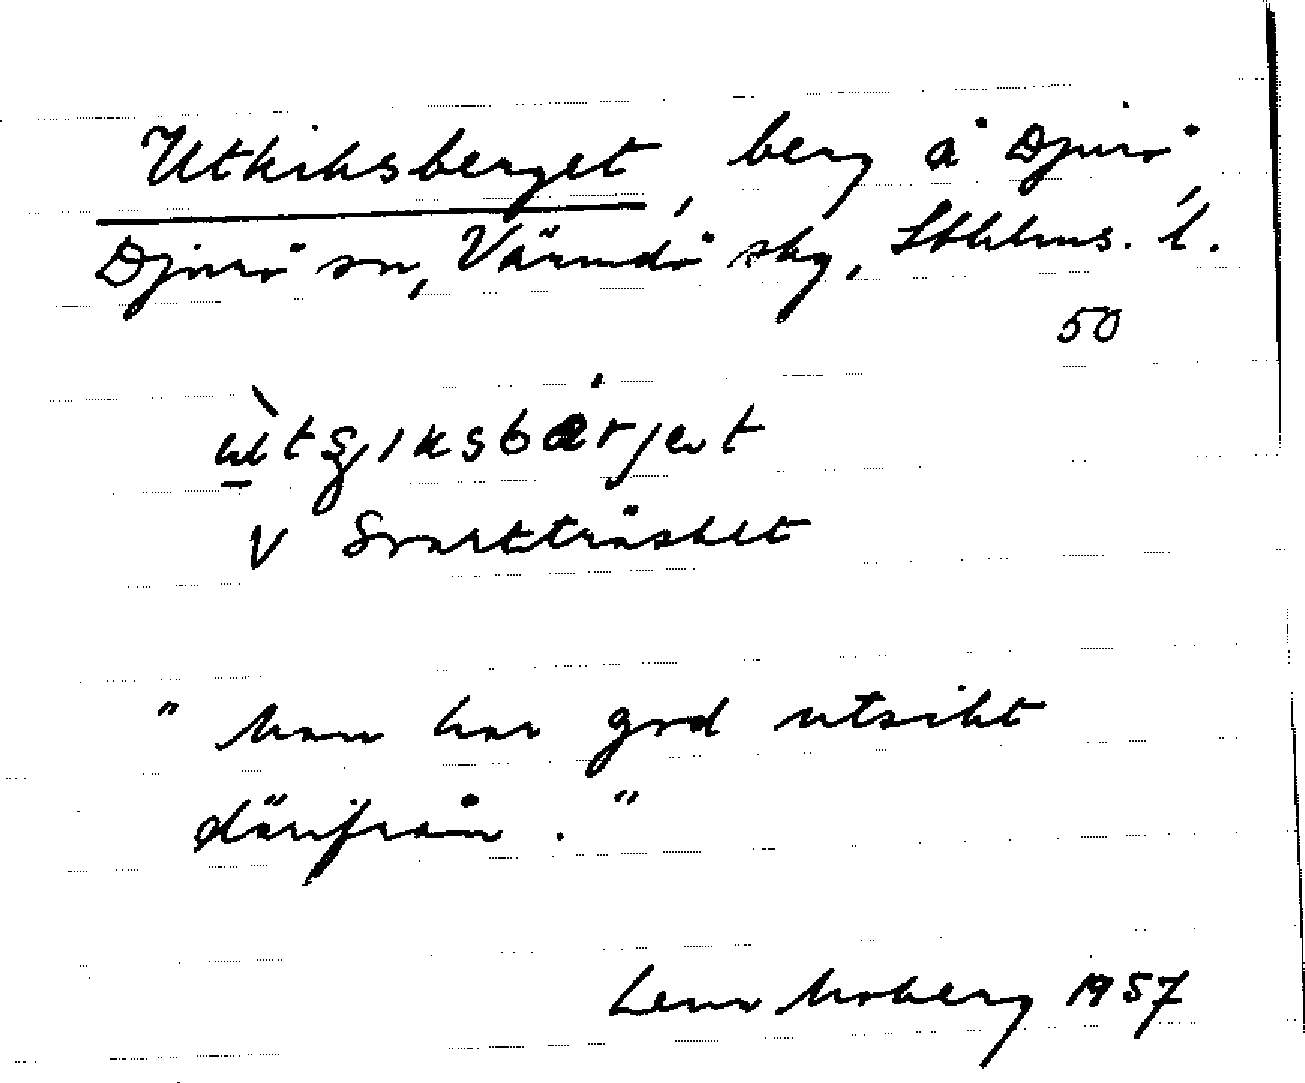 Utkiksberget, berg å Djurö,
Djurö sn, Värmdö skg, Sthlms. l.
50
V Svartträsket
"Man har god utsikt
därifrån."
Lena Moberg 1957